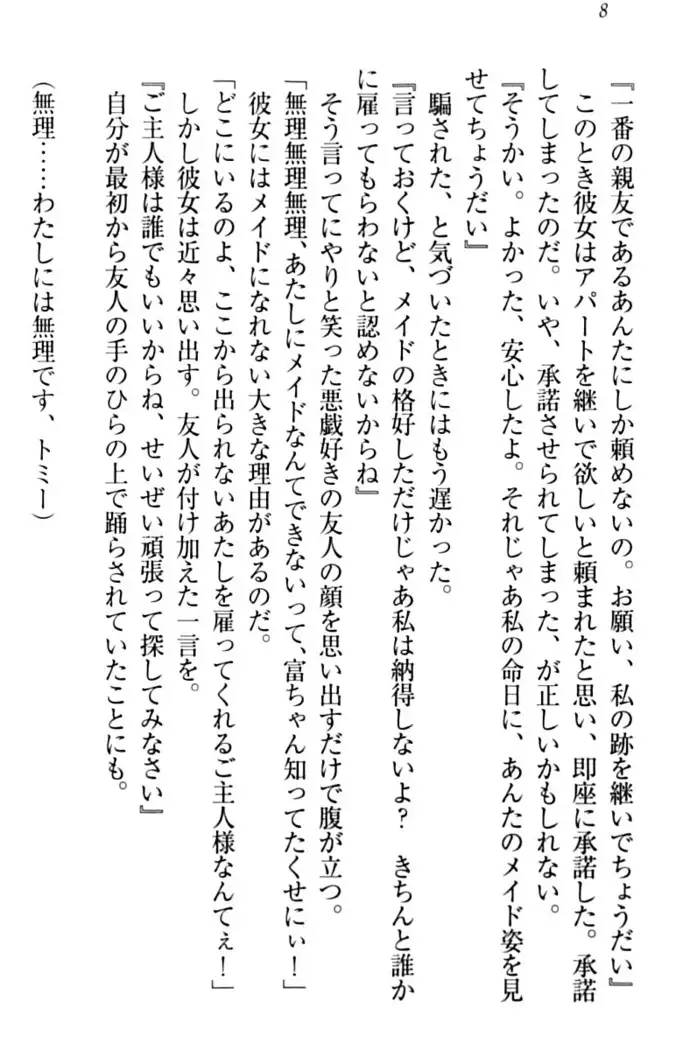 8
『一番の親友であるあんたにしか頼めないの。お願い、私の跡を継いでちょうだい』
このとき彼女はアパートを継いで欲しいと頼まれたと思い、即座に承諾した。承諾
してしまったのだ。いや、承諾させられてしまった、が正しいかもしれない。
『そうかい。よかった、安心したよ。それじゃあ私の命日に、あんたのメイド姿を見
せてちょうだい』
騙された、と気づいたときにはもう遅かった。
『言っておくけど、メイドの格好しただけじゃあ私は納得しないよ？　きちんと誰か
に雇ってもらわないと認めないからね』
そう言ってにやりと笑った悪戯好きの友人の顔を思い出すだけで腹が立つ。
「無理無理無理、あたしにメイドなんてできないって、富ちゃん知ってたくせにぃ！」
彼女にはメイドになれない大きな理由があるのだ。
「どこにいるのよ、ここから出られないあたしを雇ってくれるご主人様なんてぇ！」
しかし彼女は近々思い出す。友人が付け加えた一言を。
『ご主人様は誰でもいいからね、せいぜい頑張って探してみなさい』
自分が最初から友人の手のひらの上で踊らされていたことにも。
（無理……わたしには無理です、トミー）